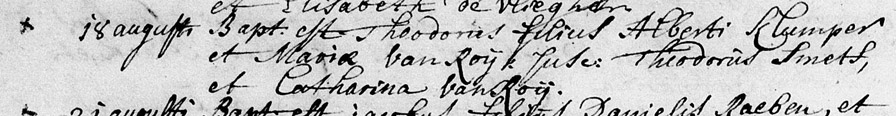 et Elisabeth de Vlieghere
x 18 augusti Bapt. est Theodorus filius Alberti Klumper
et Mariæ Van Roÿ. Susc: Theodorus Smets,
et Catharina Van Roÿ.
21 augusti Bapt est jacobus filius Danielis Raeben, et